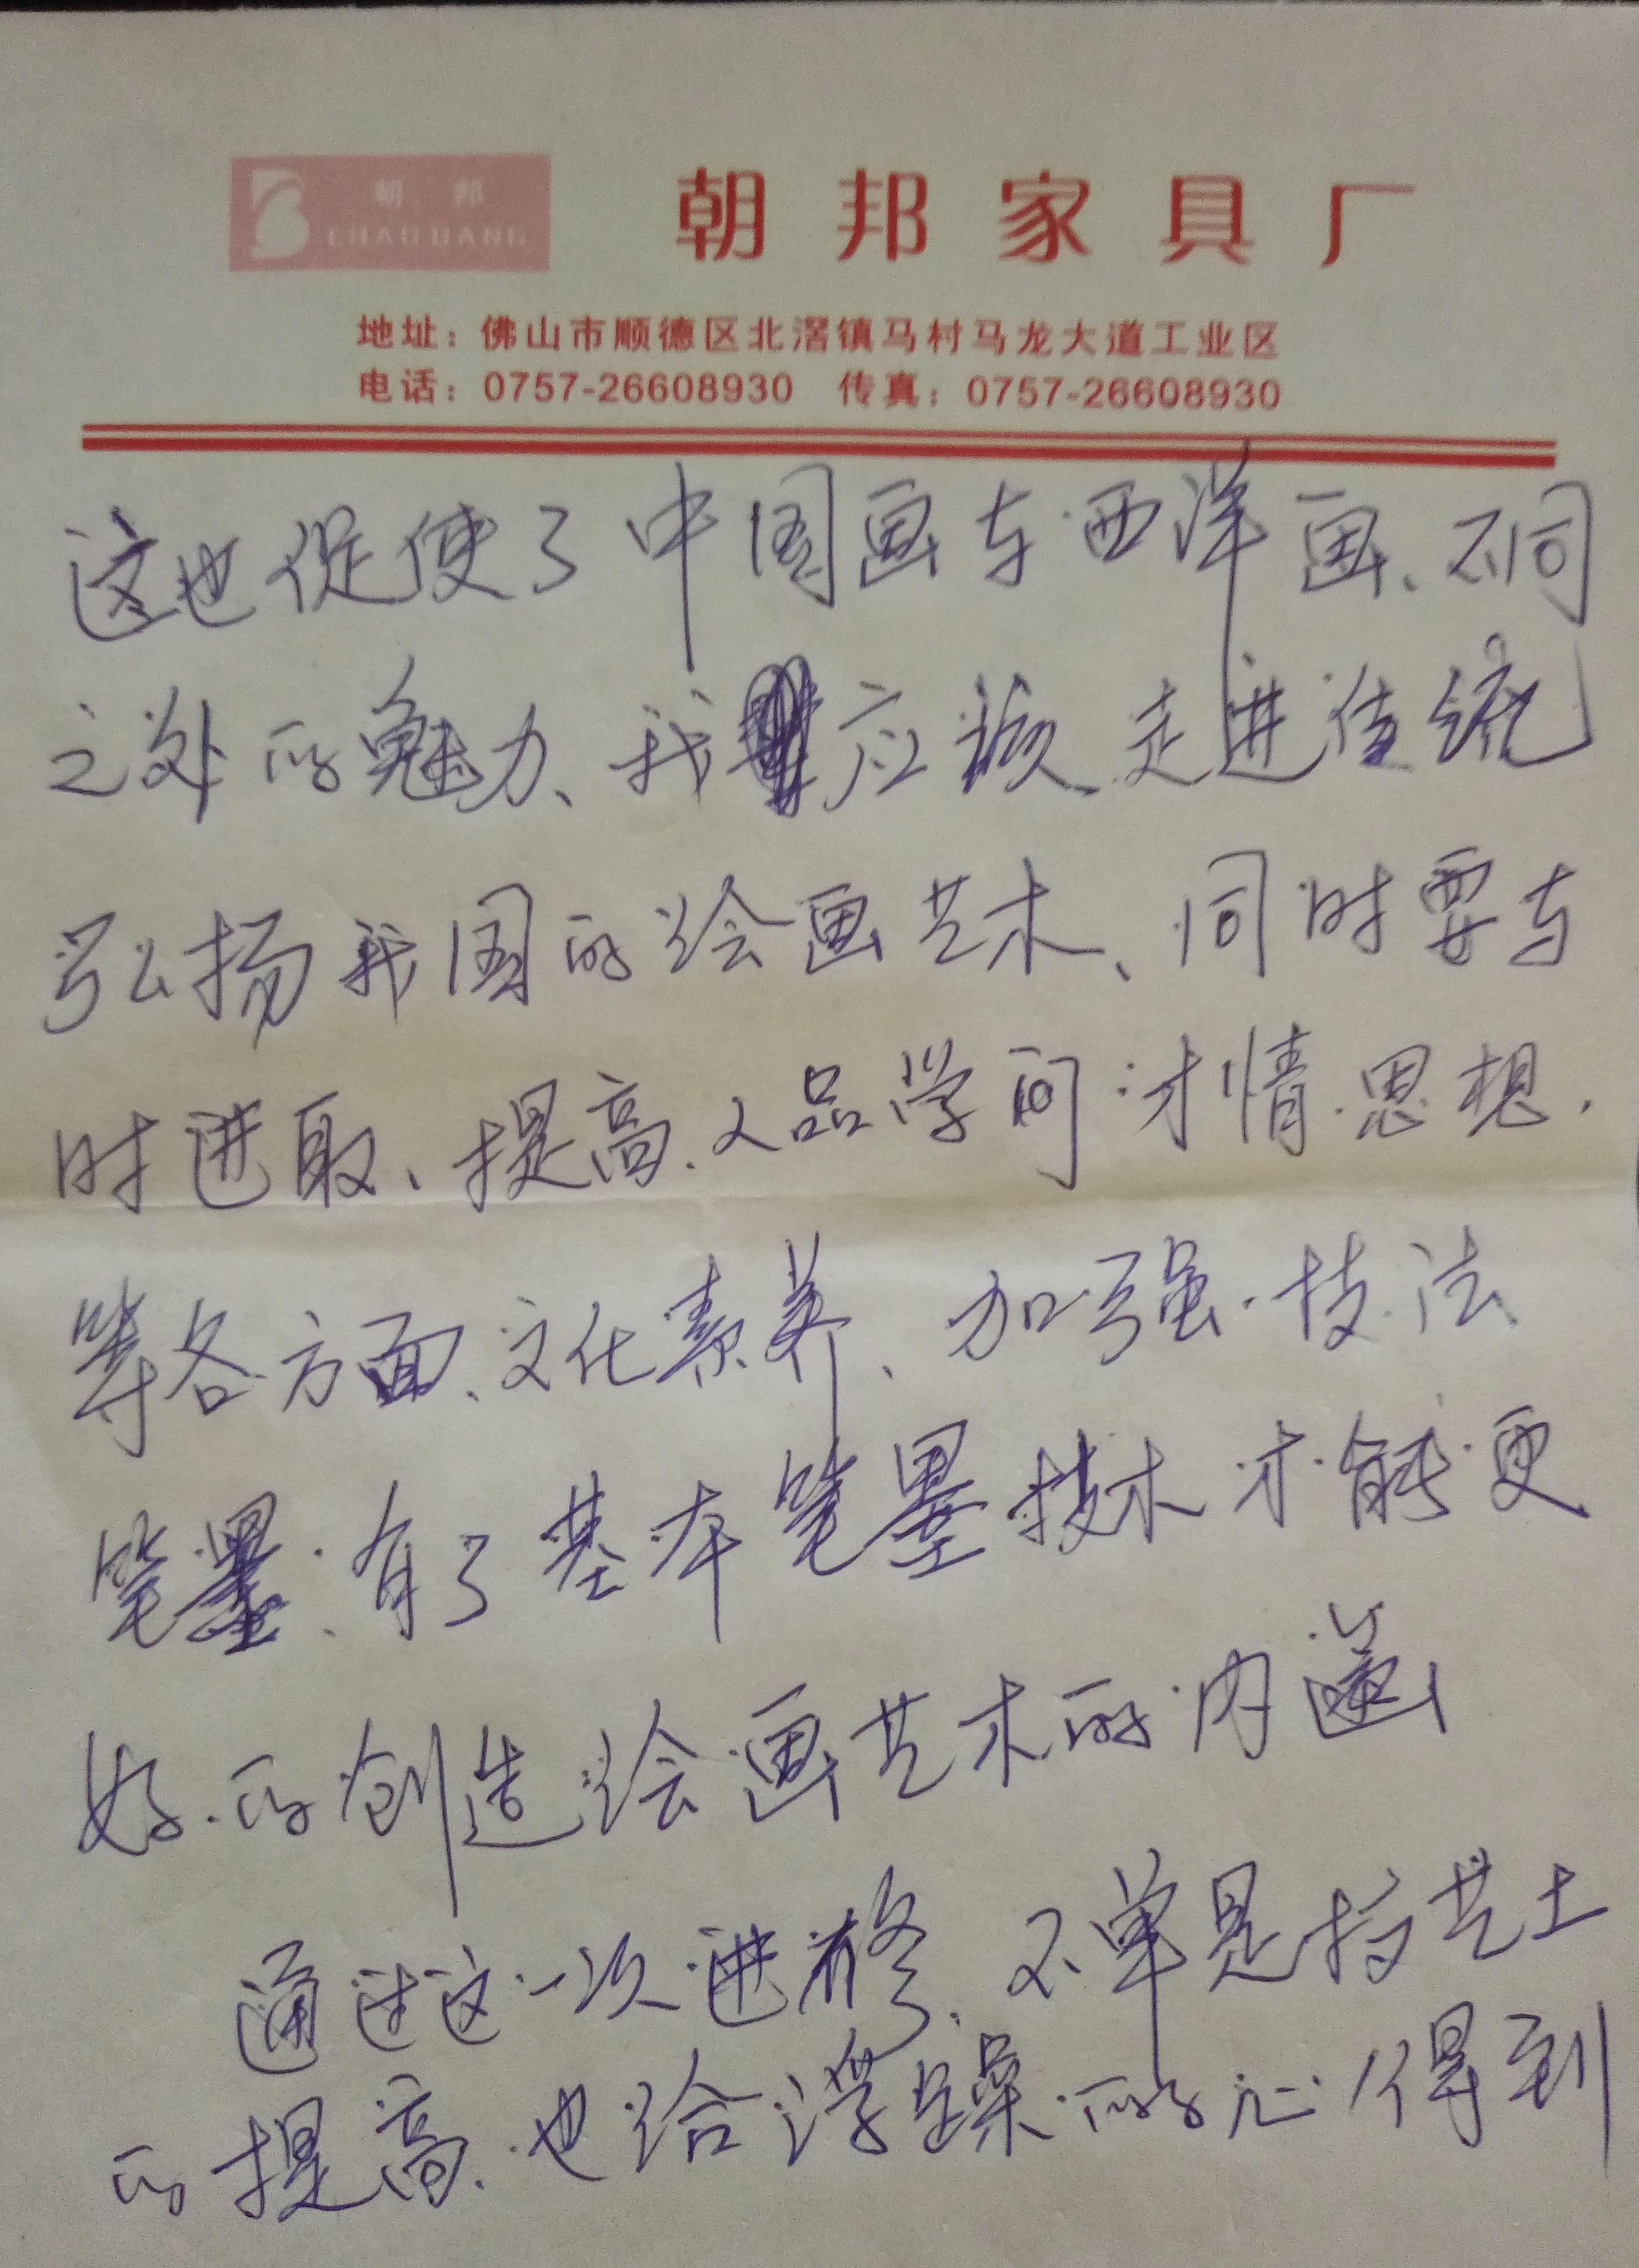 朝邦
CHAO BANG
朝邦家具厂
地址：佛山市顺德区北滘镇马村马龙大道工业区
电话：0757-26608930 传真：0757-26608930
这也促使了中国画与西洋画、不同
之处的魅力、我应该走进传统
弘扬我国的绘画艺术、同时要与
时进取、提高、人品学问才情思想.
等各方面、文化素养、加强技法
笔墨、有了基本笔墨技术才能更
好的创造绘画艺术的内涵
通过这一次进修、不单是技艺上
的提高、也给浮躁的心得到